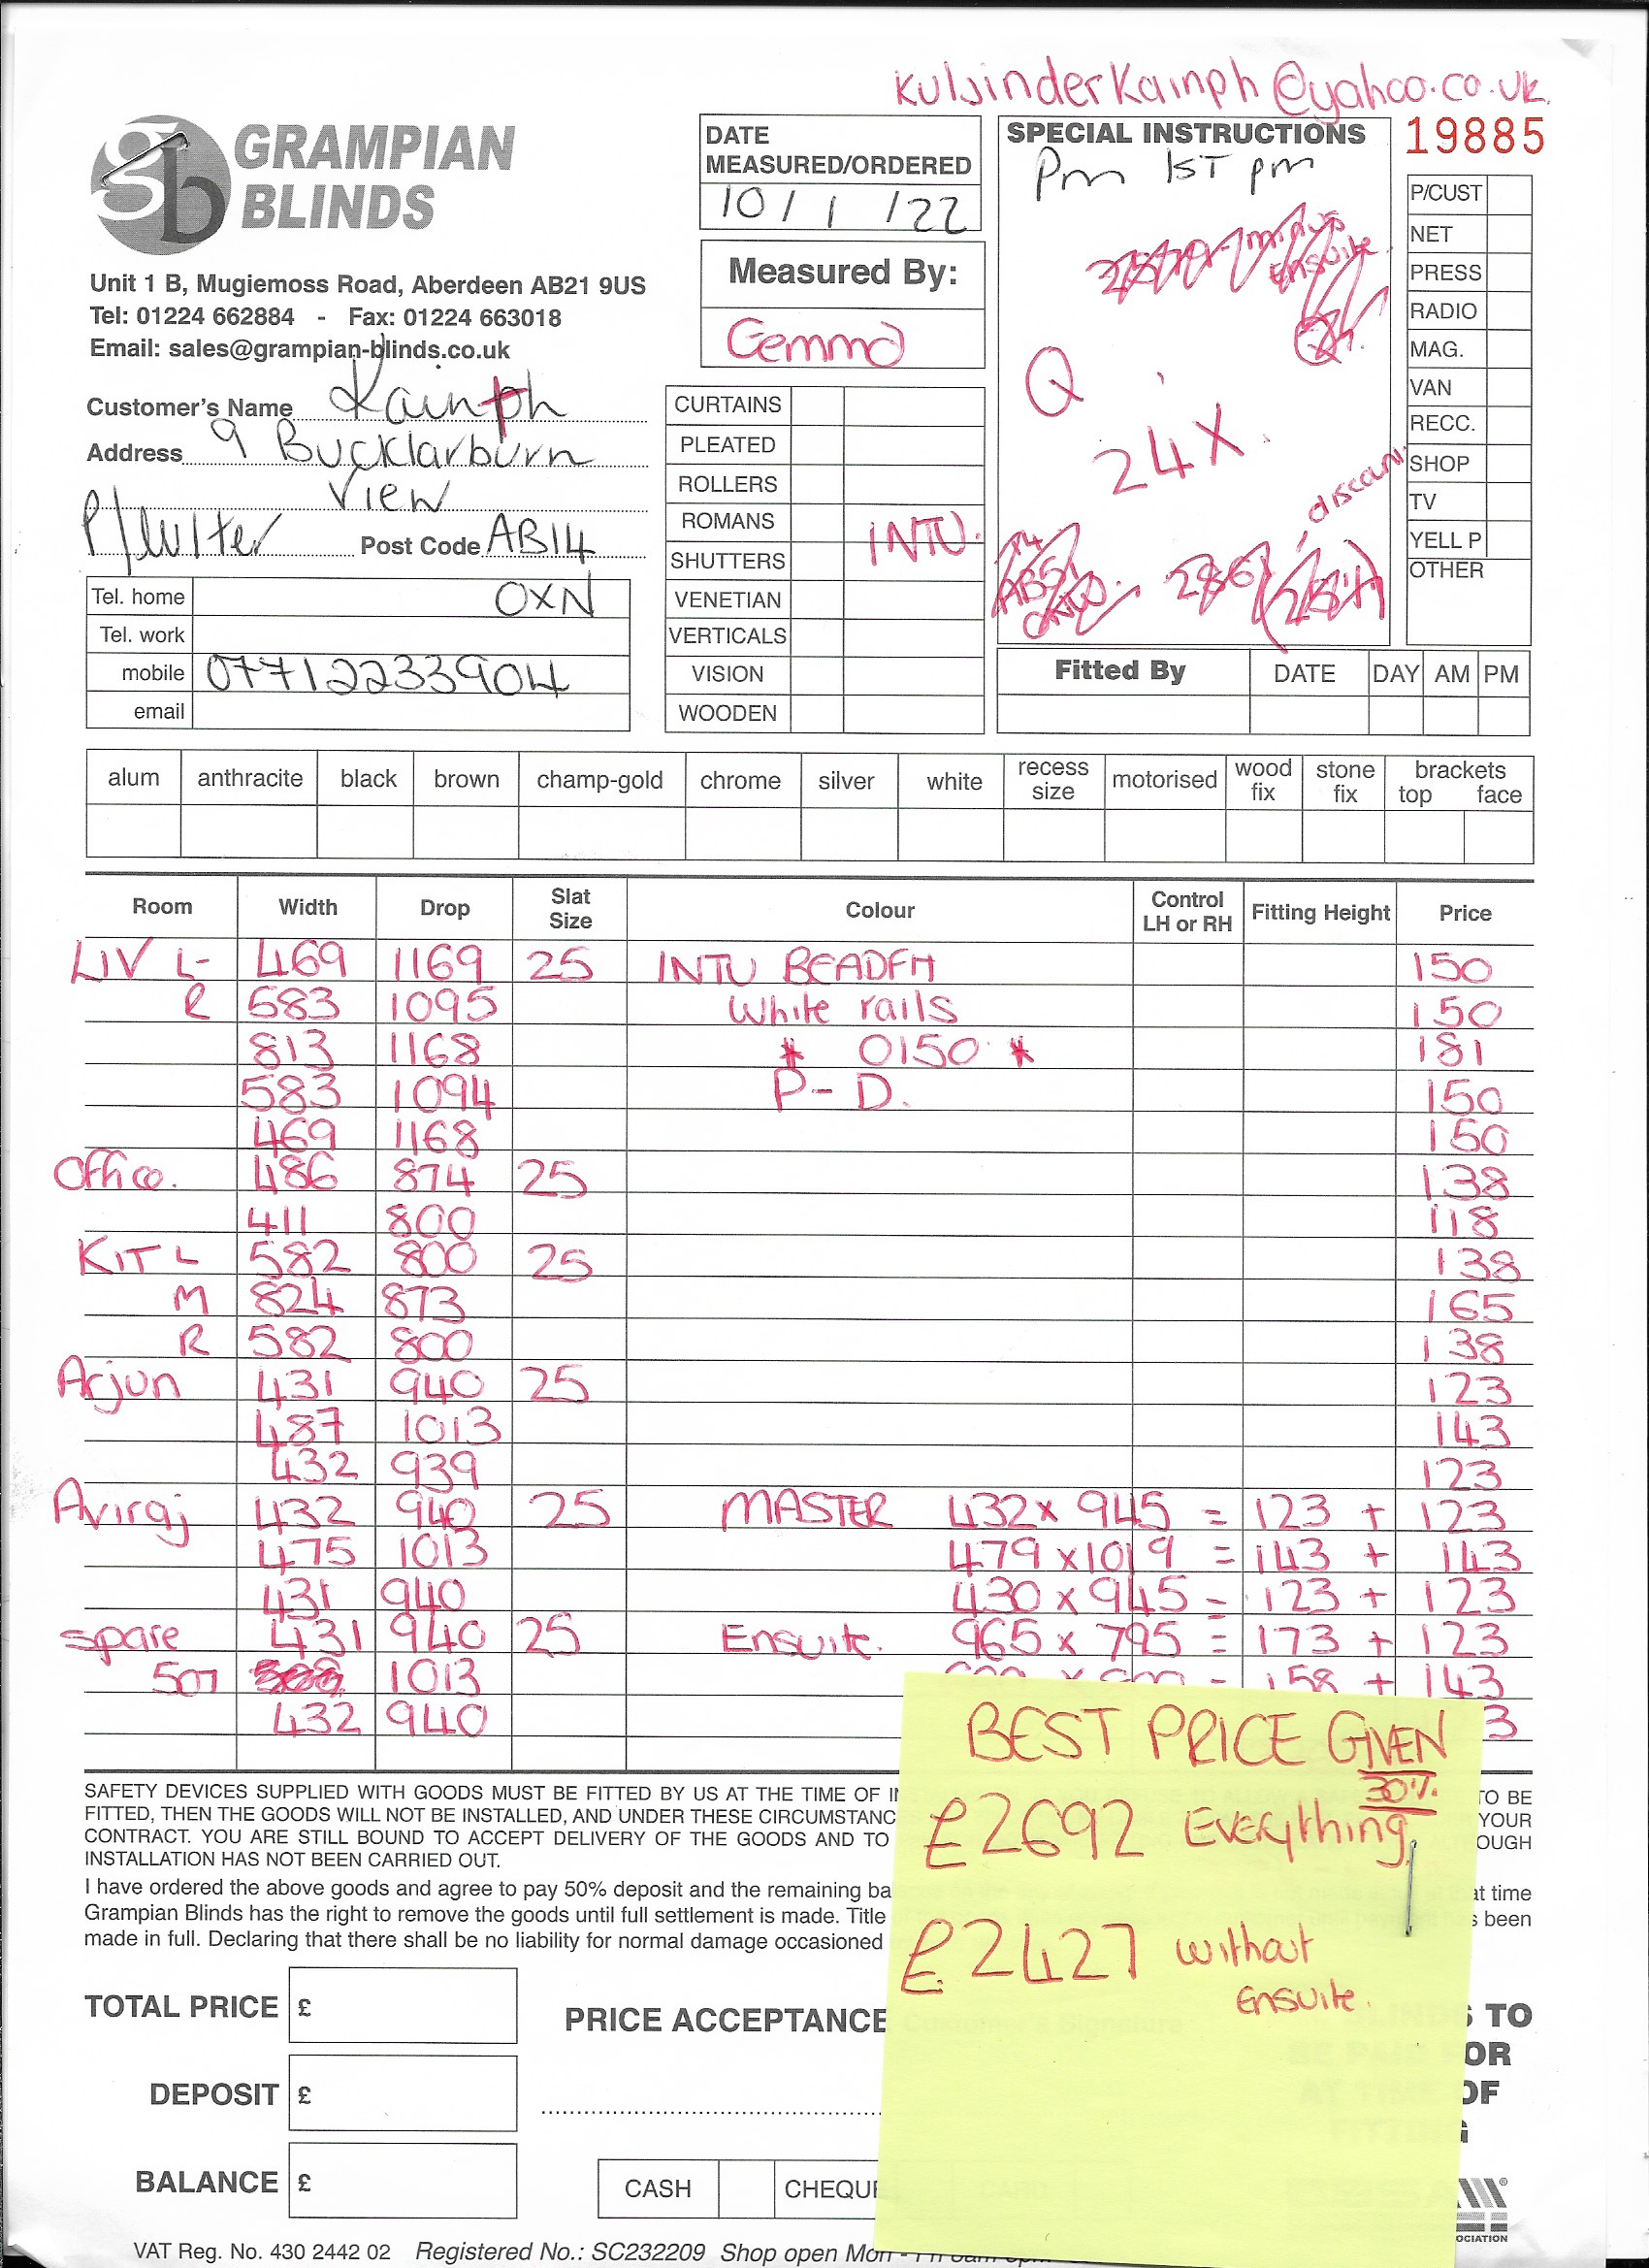 kulsinderkainph@yahoo.co.uk
GRAMPIAN
BLINDS
Unit 1 B, Mugiemoss Road, Aberdeen AB21 9US
Tel: 01224 662884 - Fax: 01224 663018
Email: sales@grampian-blinds.co.uk
DATE
MEASURED/ORDERED
10/1/22
Measured By:
Gemma
SPECIAL INSTRUCTIONS
Pm 1ST pm
minus
Ensuite
Q
24X
discount
19885
P/CUST
NET
PRESS
RADIO
MAG.
VAN
RECC.
SHOP
TV
YELL P
OTHER
Customer's Name Kainth
Address 9 Bucklarburn
View
P/Culter Post Code AB14
Tel. home 0XN
Tel. work
mobile 07712233904
email
CURTAINS
PLEATED
ROLLERS
ROMANS
INTU.
SHUTTERS
VENETIAN
VERTICALS
VISION
WOODEN
Fitted By DATE DAY AM PM
alum anthracite black brown champ-gold chrome silver white recess size motorised wood fix stone fix brackets top face
Room Width Drop Slat Size Colour Control LH or RH Fitting Height Price
LIV L- 469 1169 25 INTU BEADFH 150
R 583 1095 White rails 150
813 1168 * 0150 * 181
583 1094 P-D. 150
469 1168 150
Office. 486 874 25 138
411 800 118
KIT L 582 800 25 138
M 824 873 165
R 582 800 138
Arjun 431 940 25 123
487 1013 143
432 939 123
Aviraj 432 940 25 MASTER 432 x 945 = 123 + 123
475 1013 479 x 1019 = 143 + 143
431 940 430 x 945 = 123 + 123
Spare 431 940 25 Ensuite. 965 x 795 = 173 + 123
507 1013 158 + 143
432 940 3
BEST PRICE GIVEN
30%
£2692 Everything
£2427 without
Ensuite.
SAFETY DEVICES SUPPLIED WITH GOODS MUST BE FITTED BY US AT THE TIME OF IN TO BE
FITTED, THEN THE GOODS WILL NOT BE INSTALLED, AND UNDER THESE CIRCUMSTANC YOUR
CONTRACT. YOU ARE STILL BOUND TO ACCEPT DELIVERY OF THE GOODS AND TO OUGH
INSTALLATION HAS NOT BEEN CARRIED OUT.
I have ordered the above goods and agree to pay 50% deposit and the remaining ba at time
Grampian Blinds has the right to remove the goods until full settlement is made. Title s been
made in full. Declaring that there shall be no liability for normal damage occasioned
TOTAL PRICE £
PRICE ACCEPTANCE
S TO
OR
OF
DEPOSIT £
BALANCE £
CASH CHEQUE
OCIATION
VAT Reg. No. 430 2442 02 Registered No.: SC232209 Shop open Mon -